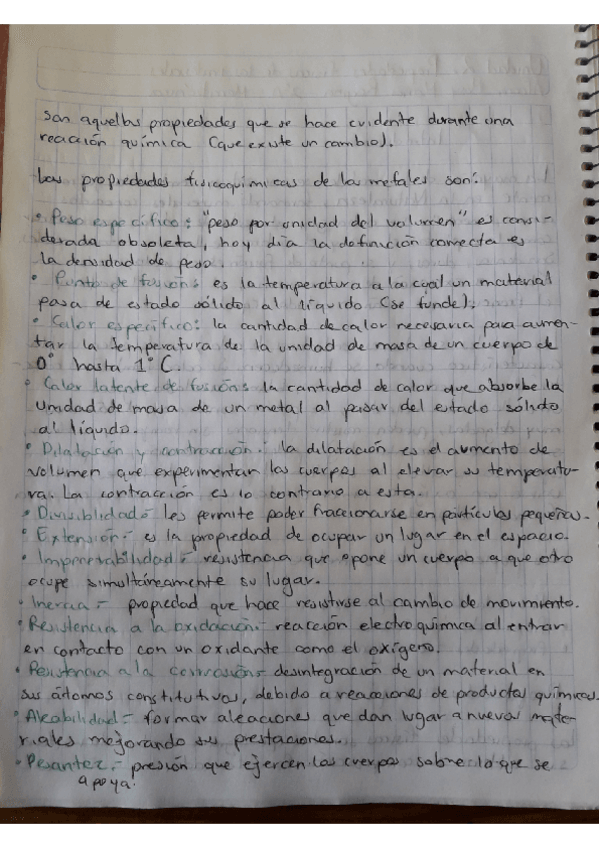 Son aquellas propiedades que se hace evidente durante una
reacción química (que existe un cambio).
Las propiedades fisicoquímicas de los metales son:
• Peso específico: "peso por unidad del volumen" es consi-
derada obsoleta, hoy día la definición correcta es
la densidad de peso.
• Punto de fusión: es la temperatura a la cual un material
pasa de estado sólido al líquido (se funde).
• Calor específico: la cantidad de calor necesaria para aumen-
tar la temperatura de la unidad de masa de un cuerpo de
0° hasta 1°C.
• Calor latente de fusión: la cantidad de calor que absorbe la
unidad de masa de un metal al pasar del estado sólido
al líquido.
• Dilatación y contracción.- la dilatación es el aumento de
volumen que experimentan los cuerpos al elevar su temperatu-
ra. La contracción es lo contrario a esta.
• Divisiblidad.- les permite poder fraccionarse en partículas pequeñas.
• Extensión.- es la propiedad de ocupar un lugar en el espacio.
• Impenetrabilidad.- resistencia que opone un cuerpo a que otro
ocupe simultáneamente su lugar.
• Inercia.- propiedad que hace resistirse al cambio de movimiento.
• Resistencia a la oxidación.- reacción electroquímica al entrar
en contacto con un oxidante como el oxígeno.
• Resistencia a la corrosión.- desintegración de un material en
sus átomos constitutivos, debido a reacciones de productos químicos.
• Aleabilidad.- formar aleaciones que dan lugar a nuevos mate-
riales mejorando sus prestaciones.
• Pesantez.- presión que ejercen los cuerpos sobre lo que se
apoya.